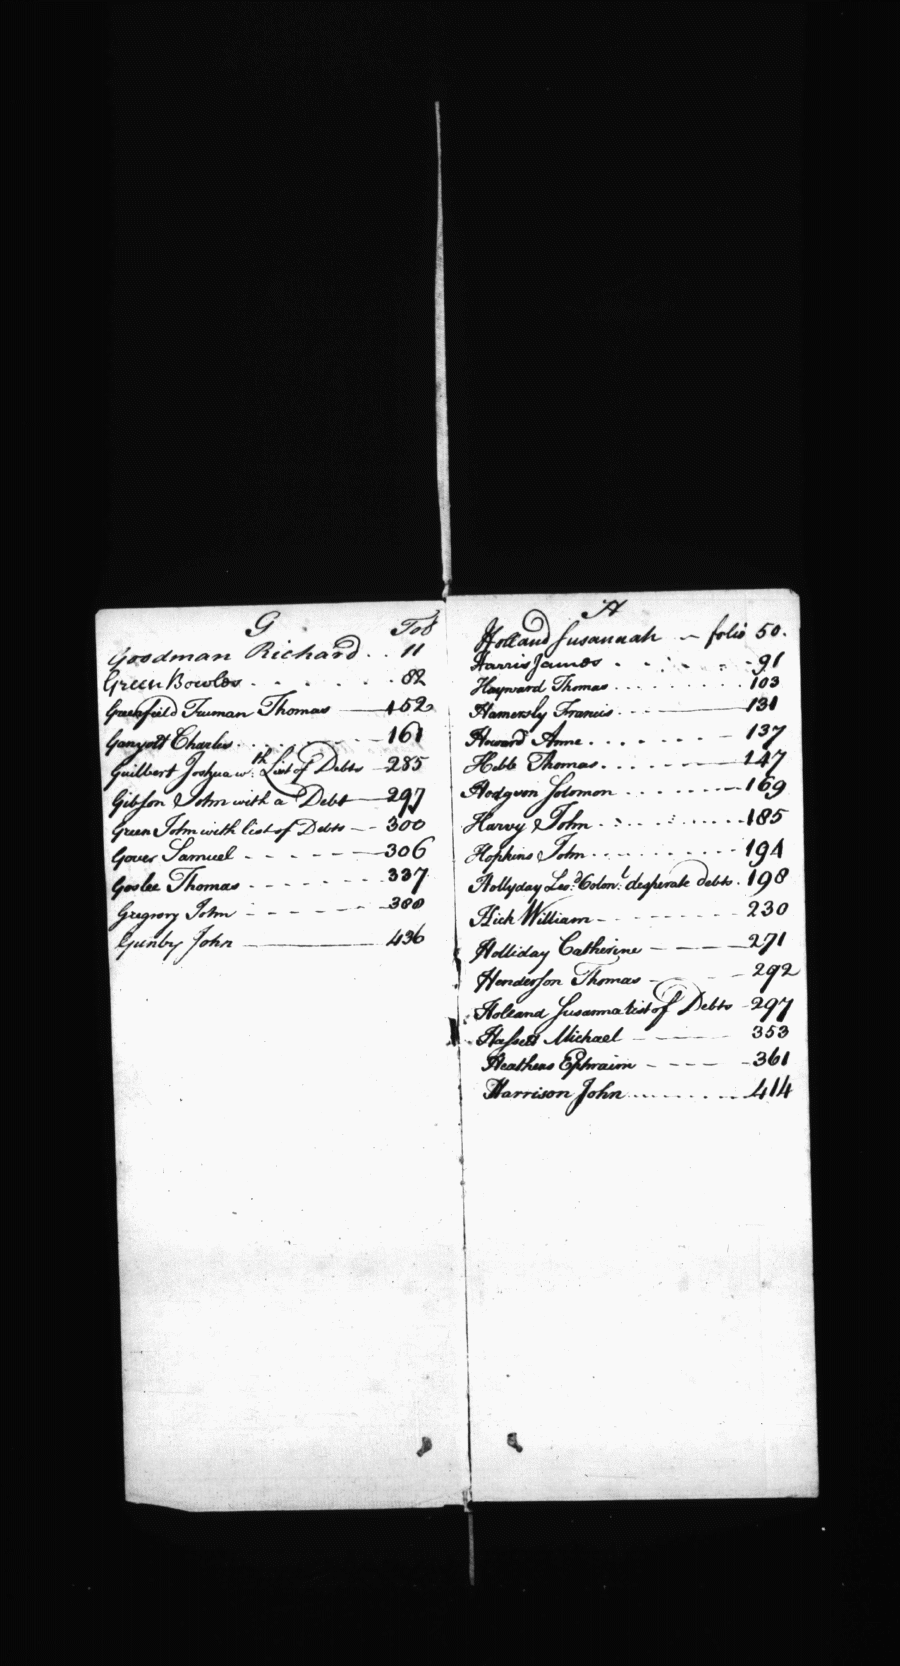 G Fol
Goodman Richard . . 11
Green Bowles . . . . . . 82
Greenfeild Truman Thomas — 152
Ganyott Charles . . . 161
Guilbert Joshua wth. List of Debts — 285
Gibson John with a Debt — 297
Green John with list of Debts — 300
Gover Samuel - - - - - - 306
Goslee Thomas - - - - - - 337
Gregrory John - - - - - 380
Gunby John — 436
H
Holland Susannah — folio 50.
Harris James . . . . . 91
Hayward Thomas . . . . . . . . 103
Hamersly Francis . . . — 131
Howard Anne . . . . . . . 137
Hebb Thomas . . . . . . — 147
Hodgson Solomon . . . . . . . 169
Harvy John . . . . . . . . 185
Hopkins John . . . . . . . . . 194
Hollyday Leod. Colonl. desperate debts . 198
Hick William - - - - - 230
Holliday Catherine - - - - 271
Henderson Thomas - - - 292
Holland Susanna list of Debts - 297
Michael - - - - - 353
Heathens Ephraim - - - - - 361
Harrison John . . . . . . . . . . 414